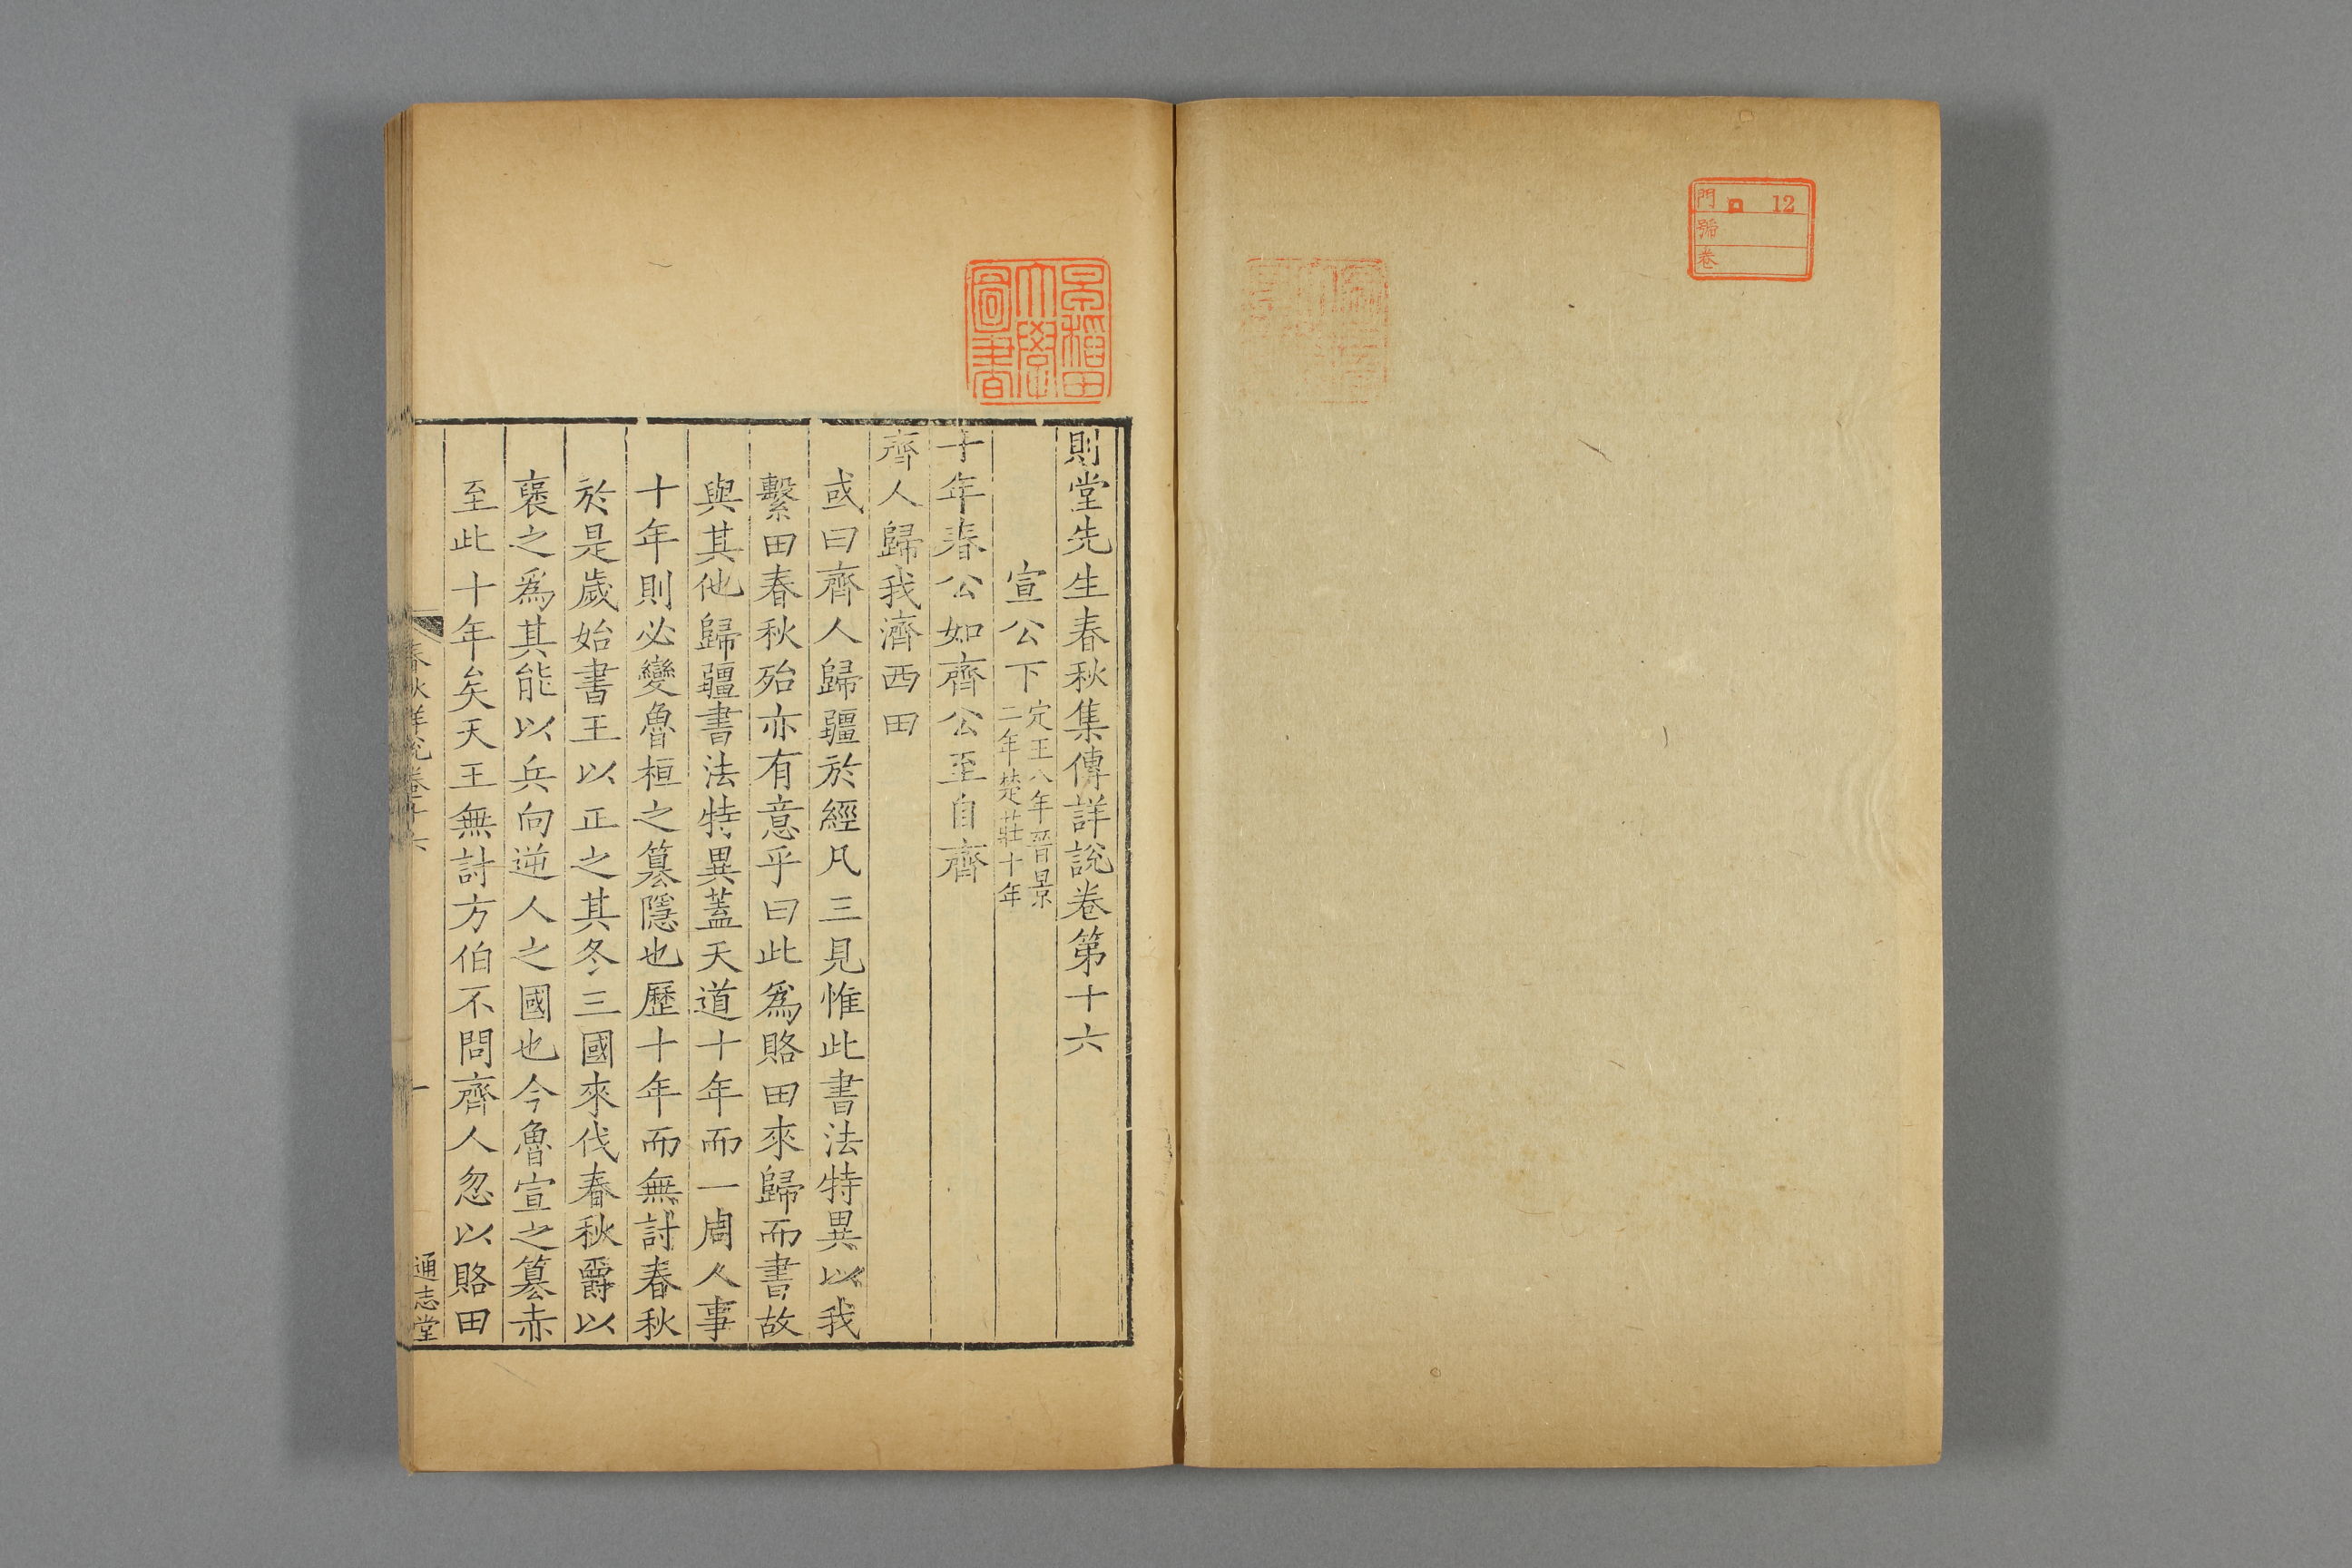 門 ロ 12
號
卷
早稻田
大學
圖書
則堂先生春秋集傳詳說卷第十六
宣公下 定王八年晉景
二年楚莊十年
十年春公如齊公至自齊
齊人歸我濟西田
或曰齊人歸疆於經凡三見惟此書法特異以我
繫田春秋殆亦有意乎曰此爲賂田來歸而書故
與其他歸疆書法特異蓋天道十年而一周人事
十年則必變魯桓之簒隱也歷十年而無討春秋
於是歲始書王以正之其冬三國來伐春秋爵以
襃之爲其能以兵向逆人之國也今魯宣之簒赤
至此十年矣天王無討方伯不問齊人忽以賂田
春秋詳說卷十六
一
通志堂